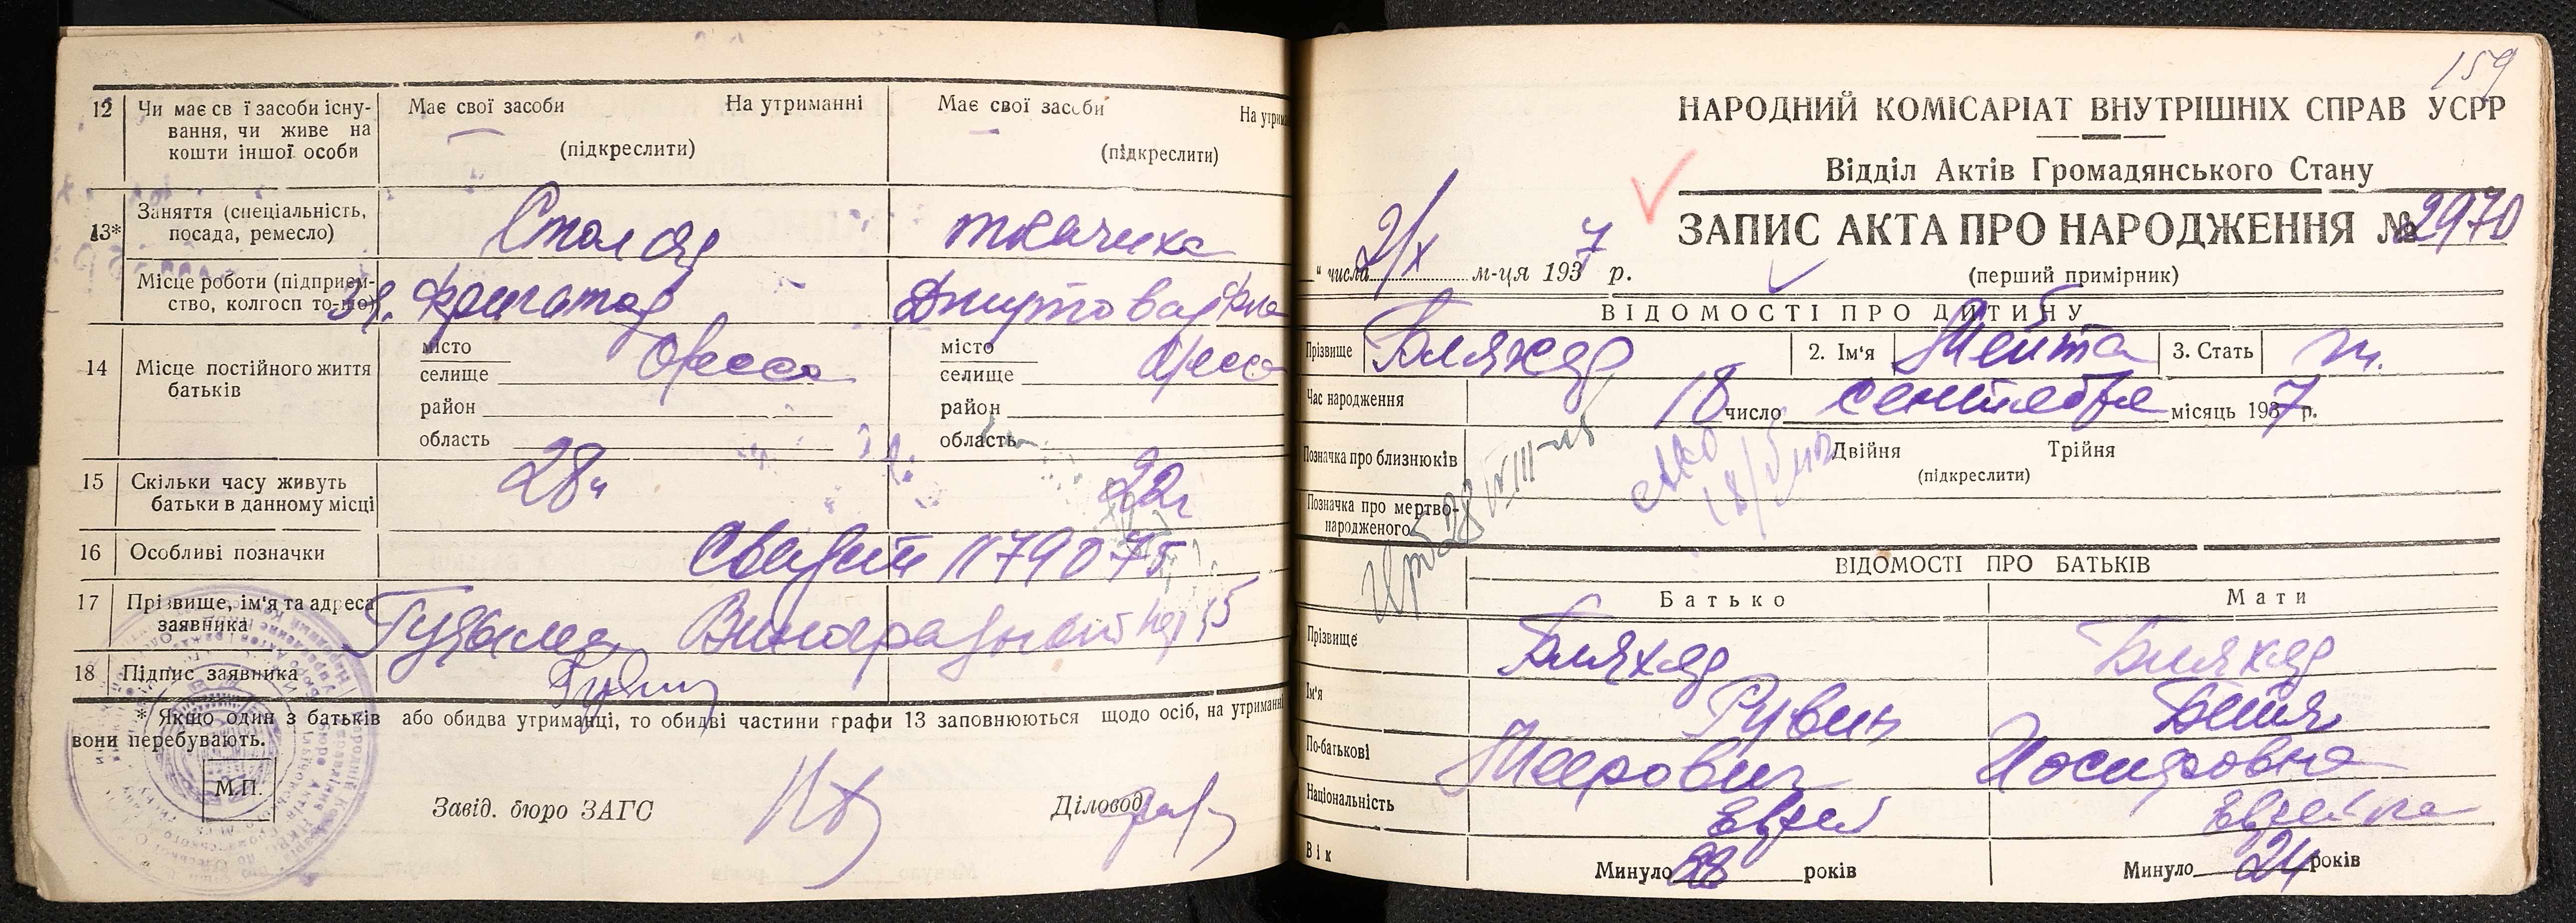 12 Чи має св ї засоби існу-
вання, чи живе на
кошти іншої особи
Має свої засоби На утриманні
(підкреслити)
Має свої засоби На утрим
(підкреслити)
13* Заняття (спеціальність,
посада, ремесло)
Столяр
ткачиха
Місце роботи (підприєм-
ство, колгосп то-що)
14 Місце постійного життя
батьків
місто
селище Одесса
район
область
місто
селище Одесса
район
область
15 Скільки часу живуть
батьки в данному місці
28
22г
16 Особливі позначки
1179075
17 Прізвище, ім'я та адреса
заявника
15
18 Підпис заявника
* Якщо один з батьків або обидва утриманці, то обидві частини графи 13 заповнюються щодо осіб, на утриманні
вони перебувають.
М.П.
Завід. бюро ЗАГС Діловод
159
НАРОДНИЙ КОМІСАРІАТ ВНУТРІШНІХ СПРАВ УСРР
Відділ Актів Громадянського Стану
ЗАПИС АКТА ПРО НАРОДЖЕННЯ № 2970
" числа 2/X м-ця 1937 р.
(перший примірник)
ВІДОМОСТІ ПРО ДИТИНУ
Прізвище Бляхер 2. Ім'я Мейта 3. Стать
Час народження 18 число сентября місяць 1937 р.
Позначка про близнюків
Двійня Трійня
(підкреслити)
Позначка про мертво-
народженого
ВІДОМОСТІ ПРО БАТЬКІВ
Батько Мати
Прізвище Бляхер Бляхер
Ім'я Рувин Бейля
По-батькові Меерович Иосифовна
Національність Еврей Еврейка
Вік
Минуло 28 років
Минуло 24 років